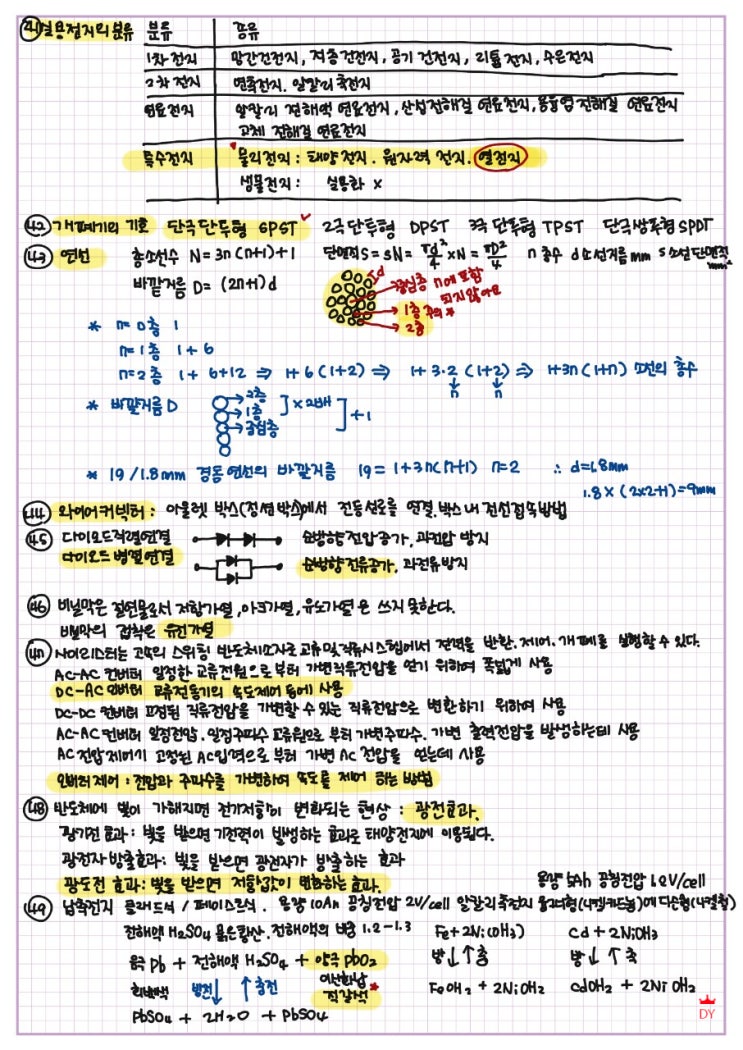 ㊶ 실용전지의 분류 분류 종류
1차 전지 망간건전지, 적층건전지, 공기 건전지, 리튬 전지, 수은전지
2차 전지 연축전지. 알칼리 축전지
연료전지 알칼리 전해액 연료전지, 산성전해질 연료전지, 용융염 전해질 연료전지
고체 전해질 연료전지
특수전지 물리전지 : 태양전지. 원자력 전지. 열전지
생물전지 : 실용화 x
㊷ 개폐기의 기호 단극단투형 SPST 2극 단투형 DPST 3극 단투형 TPST 단극쌍투형 SPDT
㊸ 연선 총소선수 N = 3n (n+1)+1 단면적 S = sN = πd²/4 ×N = πD²/4 n 층수 d 소선지름 mm s 소선단면적 mm²
바깥지름 D = (2n+1)d
d
중심층 n에 포함
되지않아요
1층 주의 *
2층
* n = 0층 1
n = 1층 1 + 6
n = 2층 1 + 6+12 ⇒ 1+6 (1+2) ⇒ 1+ 3·2 (1+2) ⇒ 1+3n (1+n) 소선의 총수
n n
* 바깥지름 D 2층
1층 ] ×2배
중심층 ] +1
* 19/1.8mm 경동연선의 바깥지름 19 = 1+3n(n+1) n=2 ∴ d=1.8mm
1.8 × (2×2+1) = 9mm
㊹ 와이어커넥터 : 아울렛 박스(정션박스)에서 전등선로를 연결. 박스 내 전선접속방법
㊺ 다이오드직렬연결 순방향 전압증가, 과전압 방지
다이오드 병렬연결 순방향 전류증가, 과전류방지
㊻ 비닐막은 절연물로서 저항가열, 아크가열, 유도가열은 쓰지 못한다.
비닐막의 접착은 유전가열
㊼ 사이리스터는 고속의 스위칭 반도체소자로 교류 및 직류시스템에서 전력을 변환. 제어. 개폐를 실행할 수 있다.
AC-AC 컨버터 일정한 교류전원으로 부터 가변직류전압을 얻기 위하여 폭넓게 사용
DC-AC 인버터 교류전동기의 속도제어 등에 사용
DC-DC 컨버터 고정된 직류전압을 가변할 수 있는 직류전압으로 변환하기 위하여 사용
AC-AC 컨버터 일정전압. 일정주파수 교류원으로 부터 가변주파수. 가변 출력전압을 발생하는데 사용
AC 전압제어기 고정된 AC입력으로 부터 가변 AC 전압을 얻는데 사용
인버터 제어 : 전압과 주파수를 가변하여 속도를 제어 하는 방법
㊽ 반도체에 빛이 가해지면 전기저항이 변화되는 현상 : 광전효과.
광기전 효과 : 빛을 받으면 기전력이 발생하는 효과로 태양전지에 이용된다.
광전자 방출효과 : 빛을 받으면 광전자가 방출하는 효과
광도전 효과 : 빛을 받으면 저항값이 변화하는 효과.
용량 5Ah 공칭전압 1.2V/cell
㊾ 납축전지 클래드식 / 페이스트식. 용량 10Ah 공칭전압 2V/cell 알칼리축전지 융그너형(니켈카드뮴)에디슨형(니켈철)
전해액 H₂SO₄ 묽은황산. 전해액의 비중 1.2-1.3 Fe + 2Ni(OH)₃ Cd + 2NiOH₃
음극 Pb + 전해액 H₂SO₄ + 양극 PbO₂ 방↓↑충 방↓↑충
회백색 방전↓ ↑충전 이산화납 FeOH₂ + 2NiOH₂ CdOH₂ + 2NiOH₂
적갈색 *
PbSO₄ + 2H₂O + PbSO₄
DY